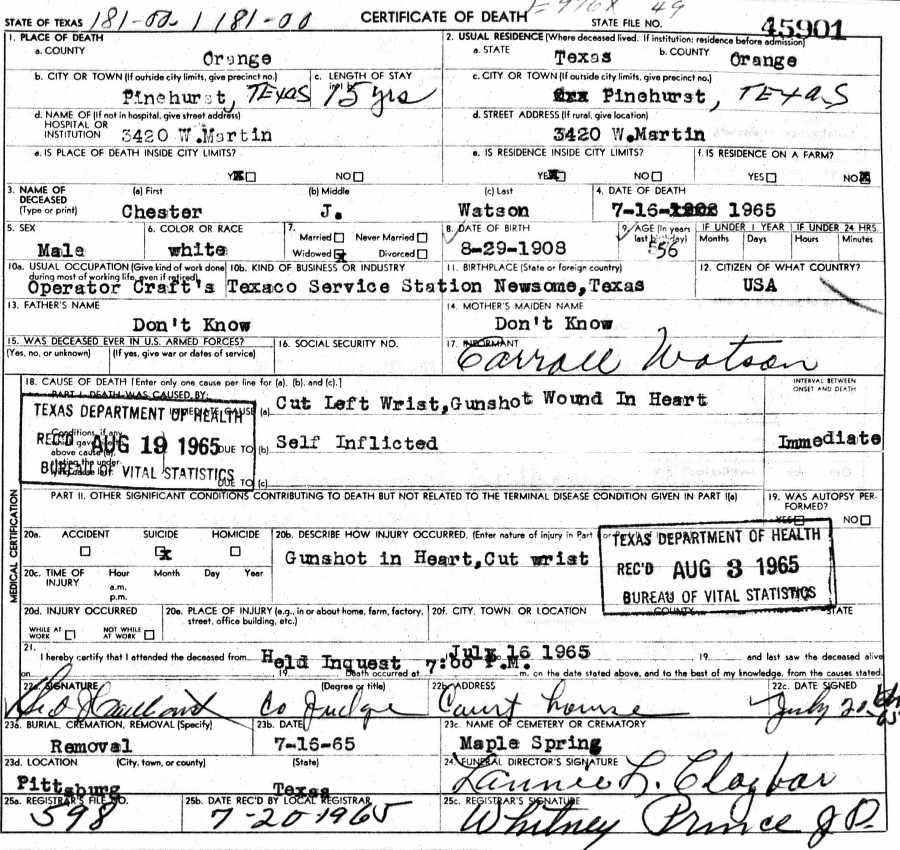 STATE OF TEXAS 181-00 1 181-00 CERTIFICATE OF DEATH STATE FILE NO. 45901
1. PLACE OF DEATH 2. USUAL RESIDENCE (Where deceased lived. If institution: residence before admission)
a. COUNTY Orange a. STATE Texas b. COUNTY Orange
b. CITY OR TOWN (If outside city limits, give precinct no.) c. LENGTH OF STAY c. CITY OR TOWN (If outside city limits, give precinct no.)
Pinehurst, TEXAS 15 yrs Pinehurst, TEXAS
d. NAME OF (If not in hospital, give street address) d. STREET ADDRESS (If rural, give location)
HOSPITAL OR
INSTITUTION 3420 W.Martin 3420 W.Martin
e. IS PLACE OF DEATH INSIDE CITY LIMITS? e. IS RESIDENCE INSIDE CITY LIMITS? f. IS RESIDENCE ON A FARM?
YES x NO YES x NO YES NO x
3. NAME OF DECEASED (Type or print) (a) First (b) Middle (c) Last 4. DATE OF DEATH
Chester J. Watson 7-16- 1965
5. SEX 6. COLOR OR RACE 7. Married Never Married 8. DATE OF BIRTH 9. AGE (In years last birthday) IF UNDER 1 YEAR IF UNDER 24 HRS.
Months Days Hours Minutes
Male white Widowed x Divorced 8-29-1908 56
10a. USUAL OCCUPATION (Give kind of work done during most of working life, even if retired) 10b. KIND OF BUSINESS OR INDUSTRY 11. BIRTHPLACE (State or foreign country) 12. CITIZEN OF WHAT COUNTRY?
Operator Craft's Texaco Service Station Newsome,Texas USA
13. FATHER'S NAME 14. MOTHER'S MAIDEN NAME
Don't Know Don't Know
15. WAS DECEASED EVER IN U.S. ARMED FORCES? 16. SOCIAL SECURITY NO. 17. INFORMANT
(Yes, no, or unknown) (If yes, give war or dates of service) Carroll Watson
MEDICAL CERTIFICATION
18. CAUSE OF DEATH [Enter only one cause per line for (a), (b), and (c).] INTERVAL BETWEEN ONSET AND DEATH
PART I. DEATH WAS CAUSED BY:
IMMEDIATE CAUSE (a) Cut Left Wrist,Gunshot Wound In Heart
DUE TO (b) Self Inflicted Immediate
DUE TO (c)
TEXAS DEPARTMENT OF HEALTH
REC'D AUG 19 1965
BUREAU OF VITAL STATISTICS
PART II. OTHER SIGNIFICANT CONDITIONS CONTRIBUTING TO DEATH BUT NOT RELATED TO THE TERMINAL DISEASE CONDITION GIVEN IN PART I(a) 19. WAS AUTOPSY PERFORMED?
YES NO
20a. ACCIDENT SUICIDE HOMICIDE 20b. DESCRIBE HOW INJURY OCCURRED. (Enter nature of injury in Part I or
x Gunshot in Heart,Cut wrist
TEXAS DEPARTMENT OF HEALTH
REC'D AUG 3 1965
BUREAU OF VITAL STATISTICS
20c. TIME OF INJURY Hour Month Day Year
a.m.
p.m.
20d. INJURY OCCURRED 20e. PLACE OF INJURY (e.g., in or about home, farm, factory, street, office building, etc.) 20f. CITY, TOWN, OR LOCATION COUNTY STATE
WHILE AT WORK NOT WHILE AT WORK
21. I hereby certify that I attended the deceased from Held Inquest July 16 1965 19 and last saw the deceased alive
on 19 Death occurred at 7:00 P.M. m. on the date stated above, and to the best of my knowledge, from the causes stated.
22a. SIGNATURE (Degree or title) 22b. ADDRESS 22c. DATE SIGNED
Co Judge Court house July 20
23a. BURIAL, CREMATION, REMOVAL (Specify) 23b. DATE 23c. NAME OF CEMETERY OR CREMATORY
Removal 7-16-65 Maple Spring
23d. LOCATION (City, town, or county) (State) 24. FUNERAL DIRECTOR'S SIGNATURE
Pittsburg Texas Lannie L. Claybar
25a. REGISTRAR'S FILE NO. 25b. DATE REC'D BY LOCAL REGISTRAR 25c. REGISTRAR'S SIGNATURE
598 7-20 1965 Whitney Prince J P.